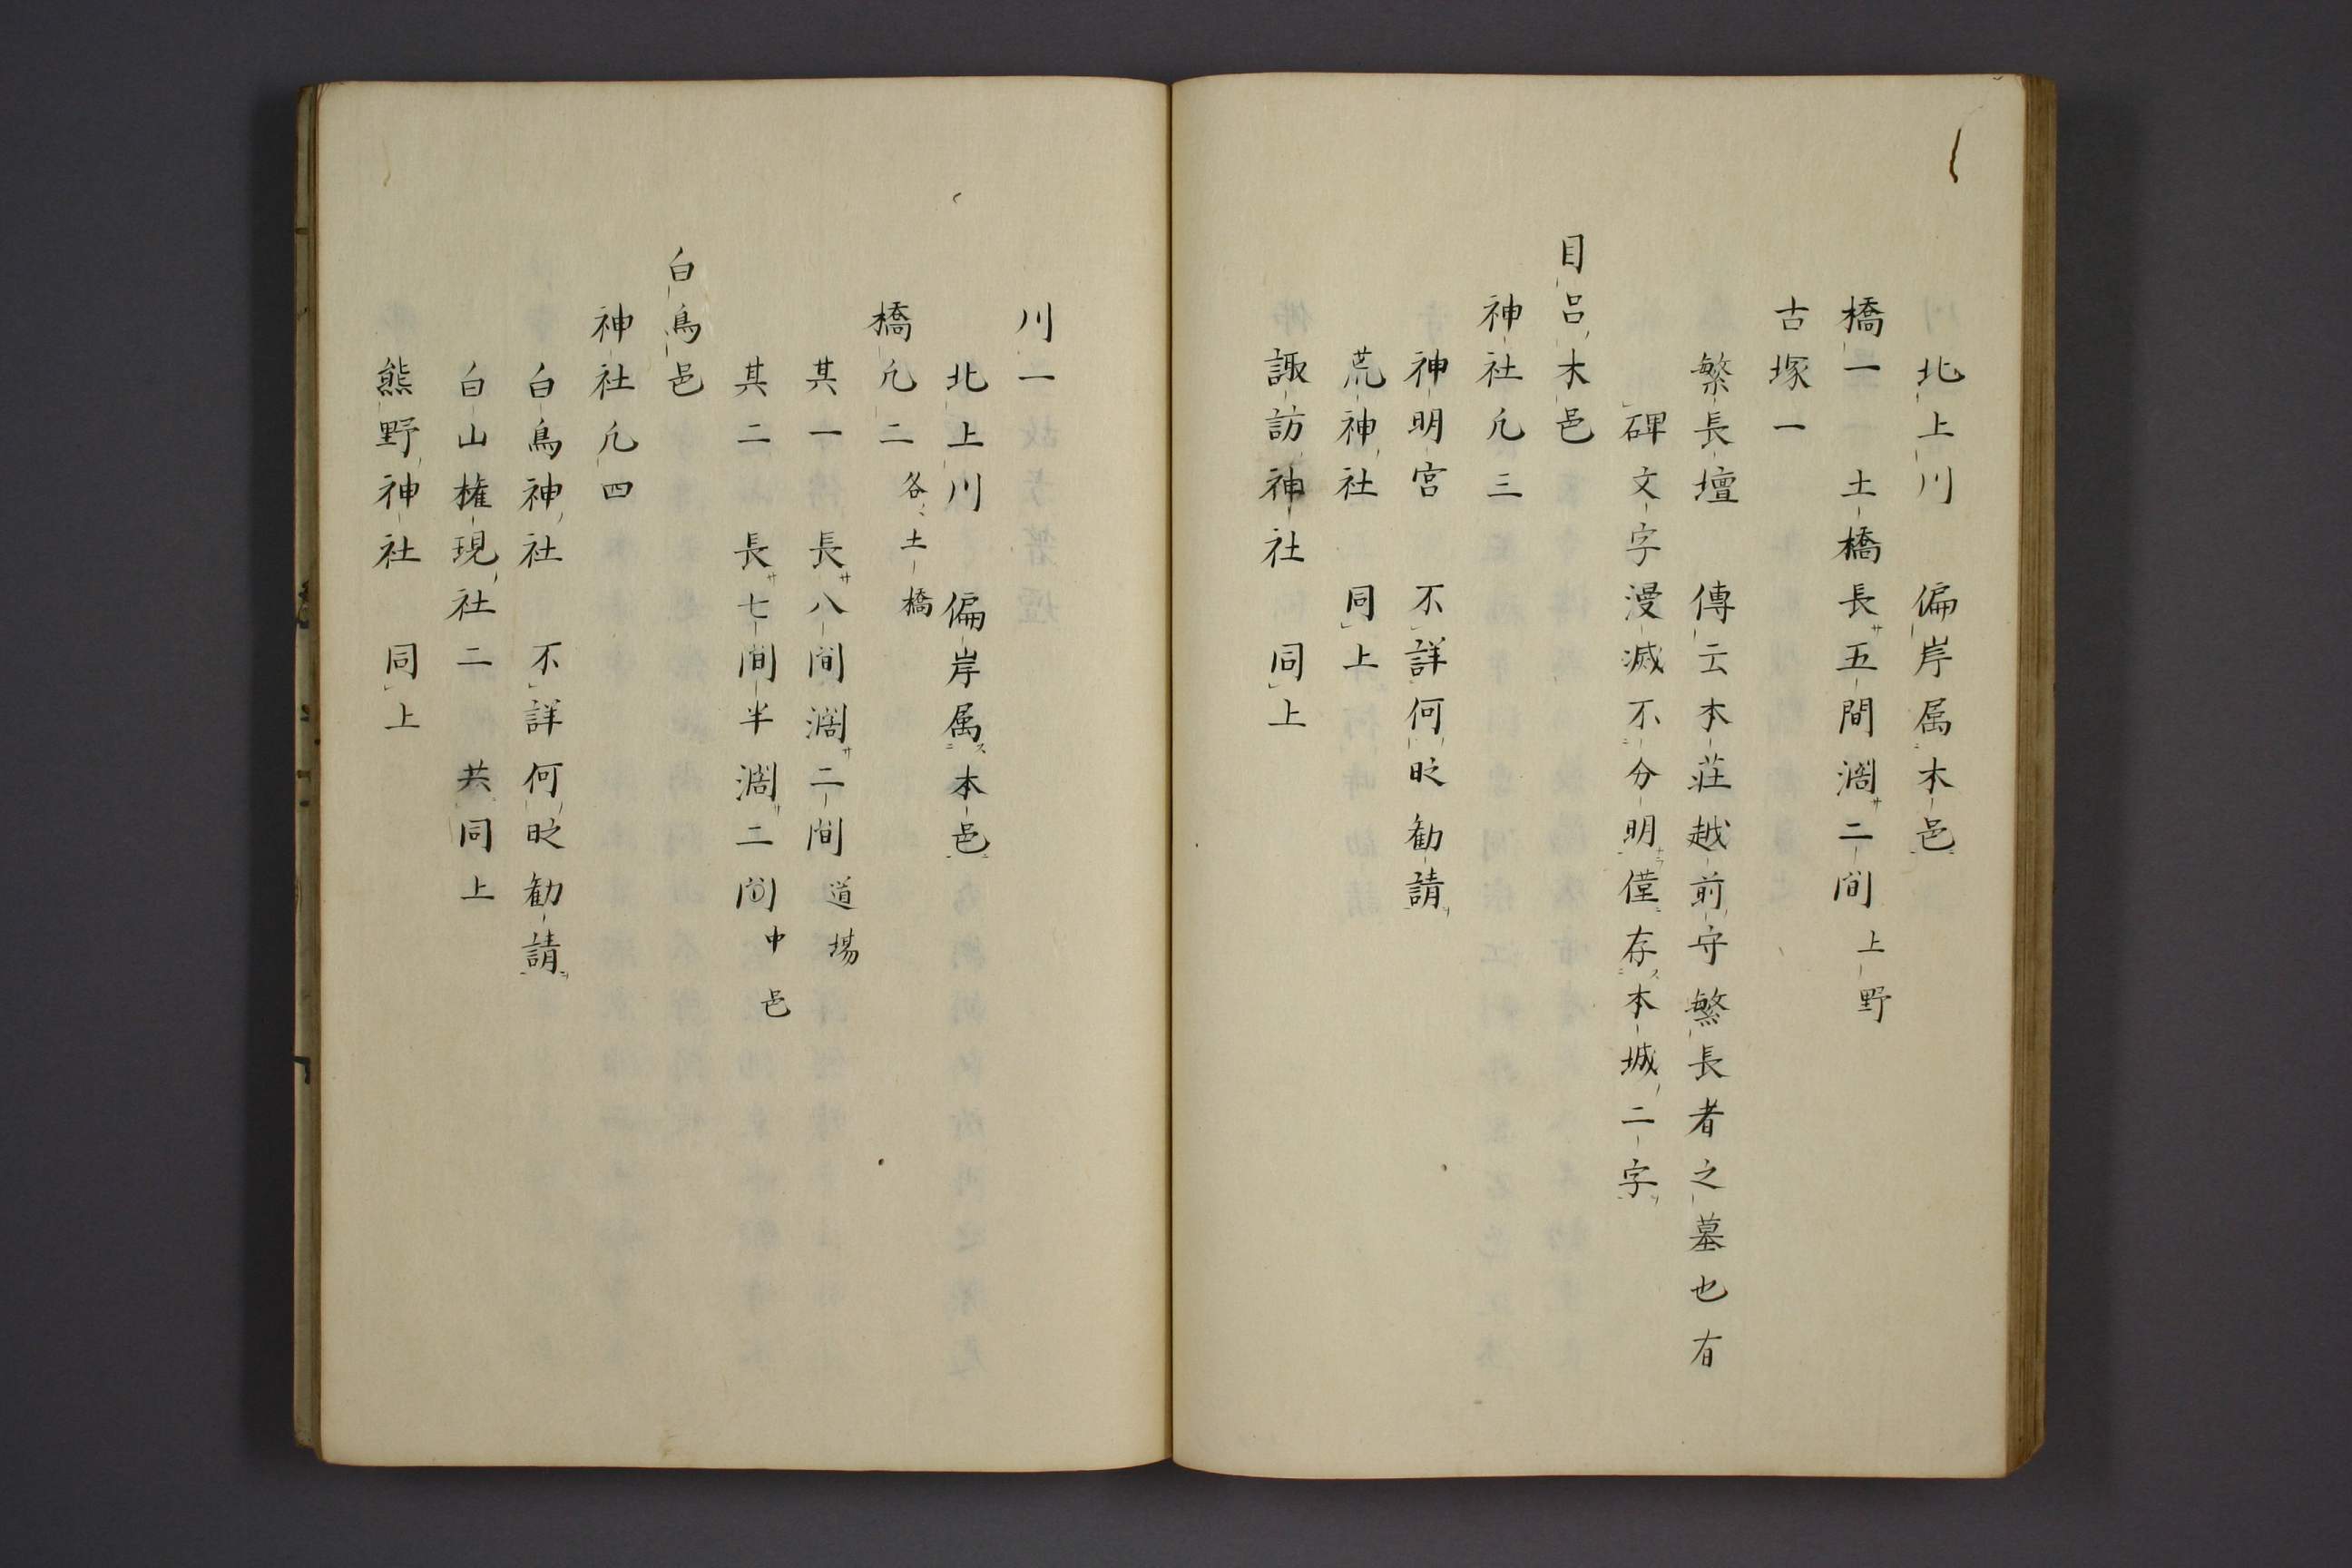 川北上川　偏岸属本邑
橋一　土橋長サ五間濶サ二間　上野
古塚一
繁長壇　傳云本莊越前守繁長者之墓也有
碑文字漫滅不分明僅存ス本城二字
目呂木邑
神社凡三
神明宮　不詳何时勧請
荒神社　同上
諏訪神社　同上
川一
北上川　偏岸属ス本邑
橋凡二　各土橋
其一　長サ八間濶サ二間　道場
其二　長サ七間半濶サ二间　中邑
白鳥邑
神社凡四
白鳥神社　不詳何时勧請
白山権現社二　共同上
熊野神社　同上